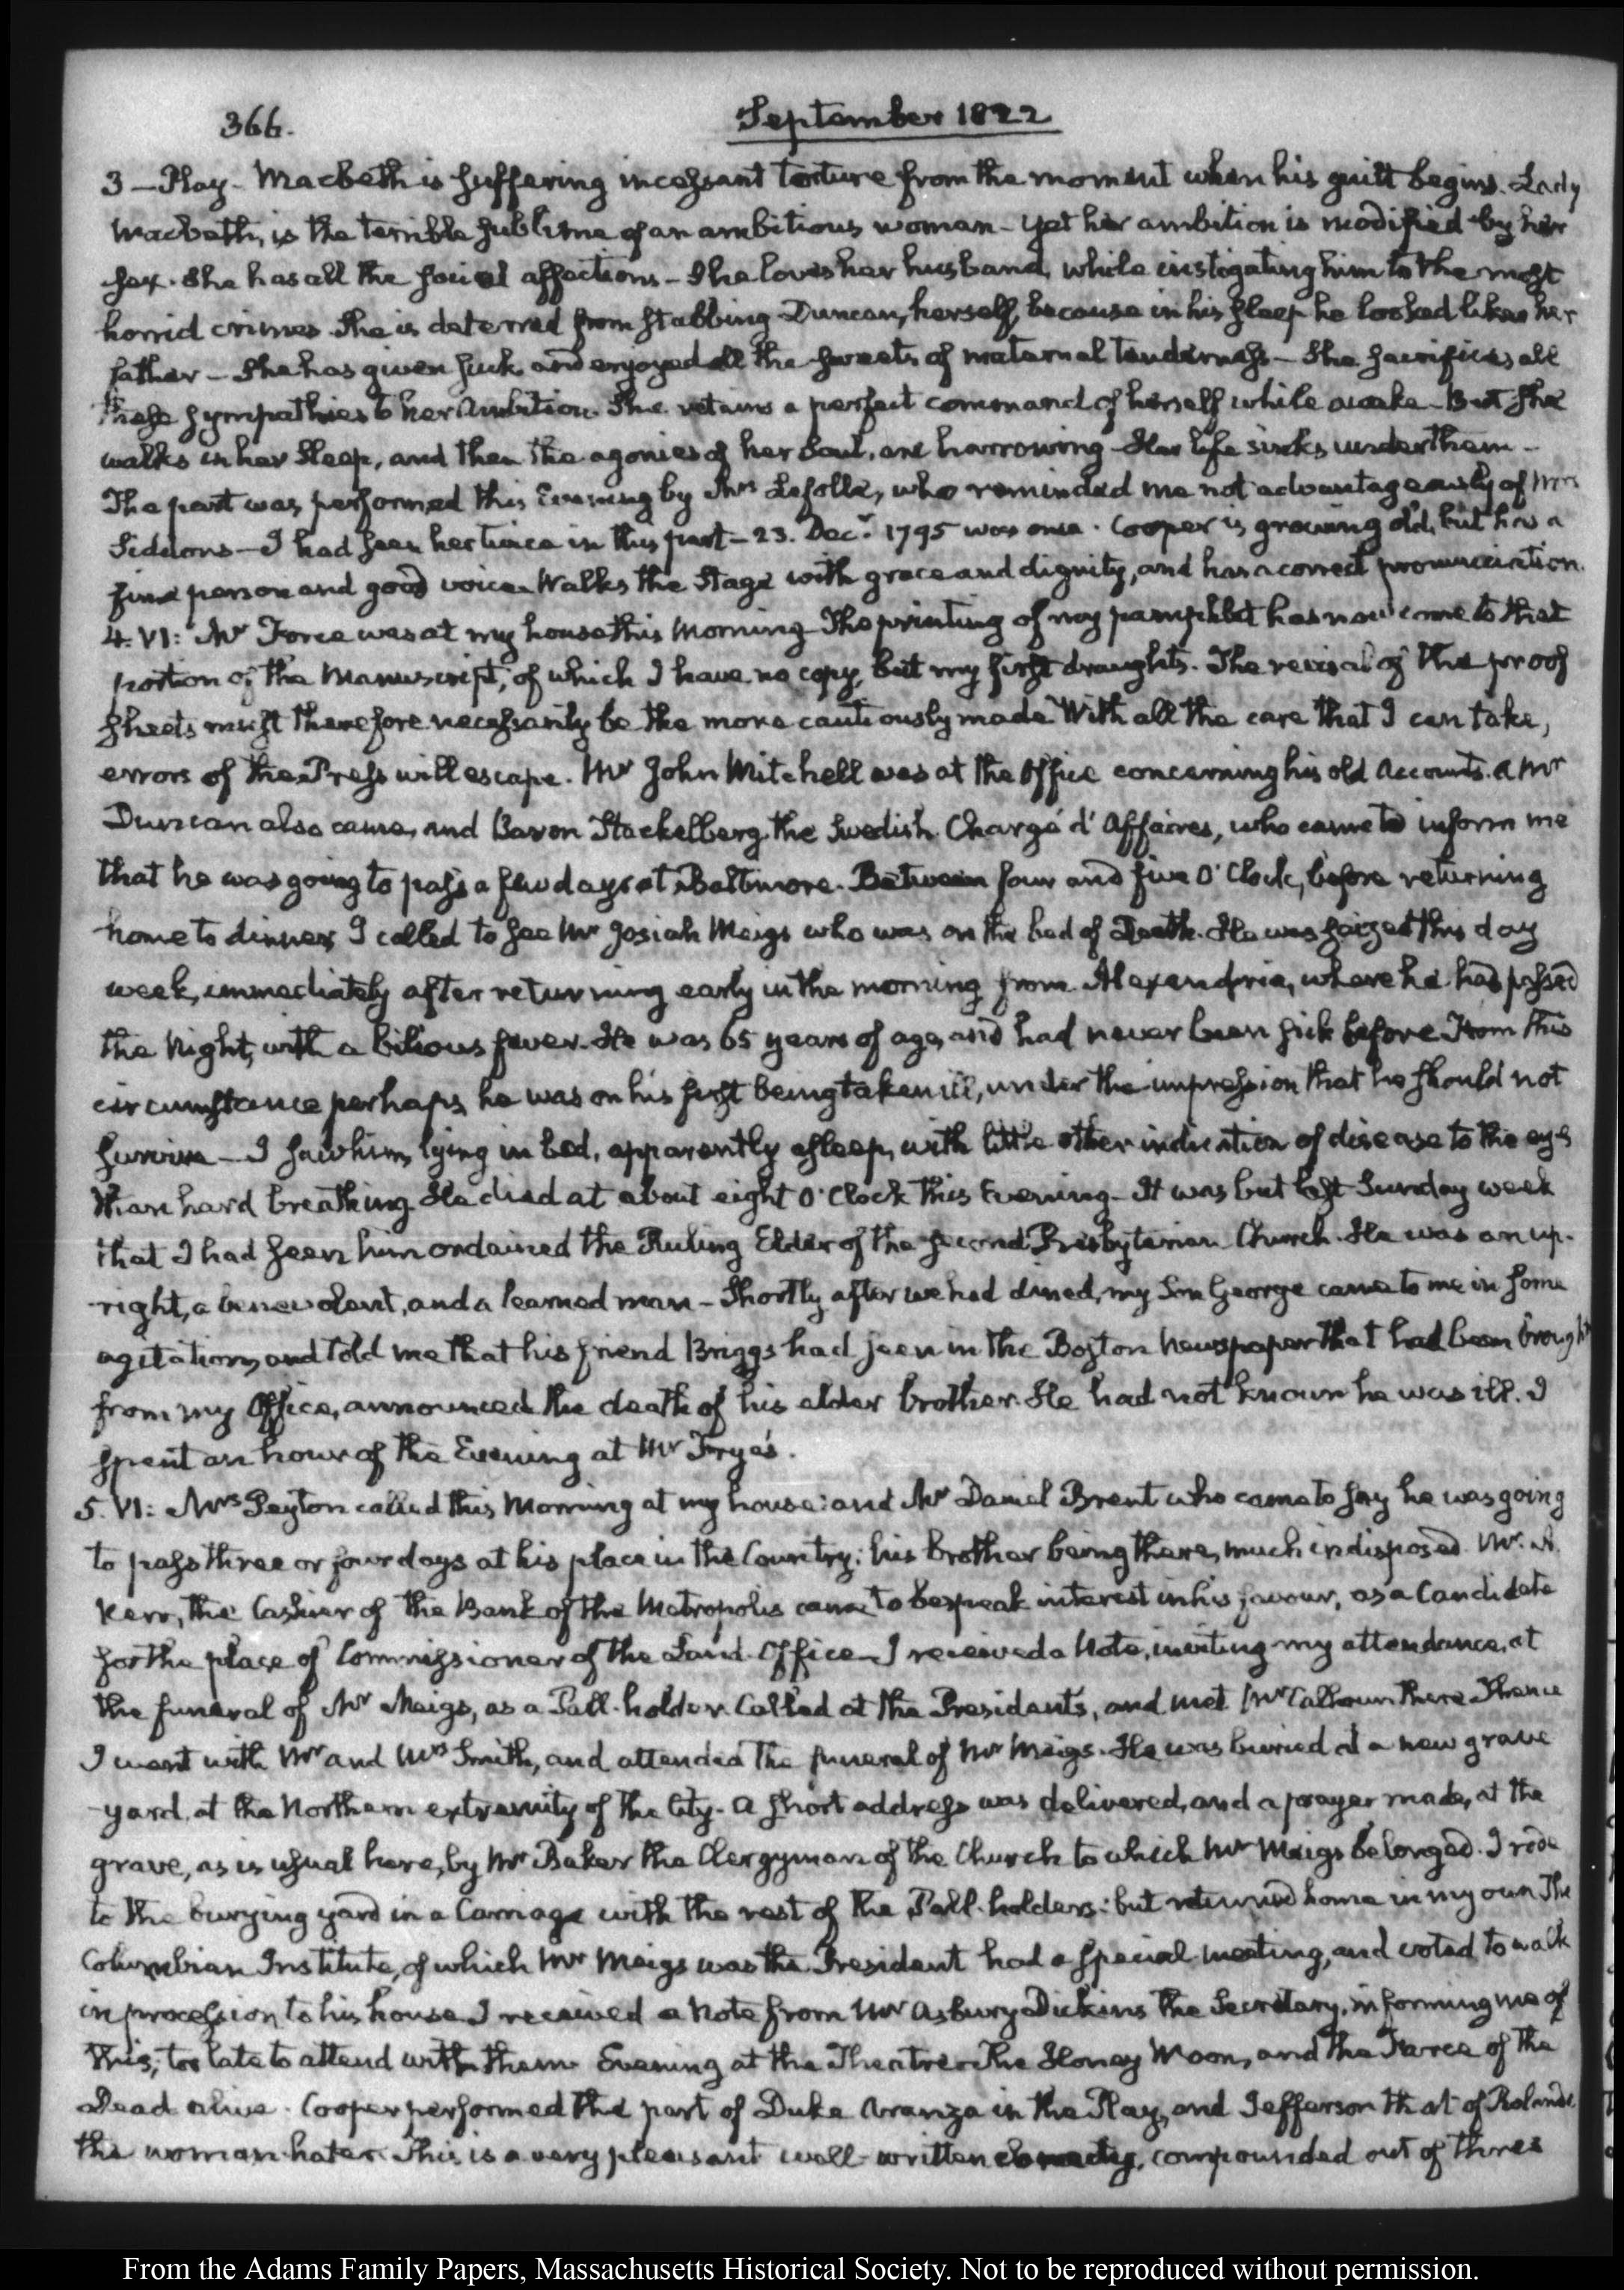 366.
September 1822
3 — Play - Macbeth is suffering incessant torture from the moment when his guilt begins. Lady
Macbeth, is the terrible sublime of an ambitious woman - yet her ambition is modified by her
sex. She has all the social affections - She loves her husband, while instigating him to the most
horrid crimes She is deterred from stabbing Duncan, herself, because in his sleep he looked like her
father - She has given suck and enjoyed all the sweets of maternal tenderness - She sacrifices all
these sympathies to her Ambition. She retains a perfect command of herself while awake - But she
walks in her Sleep, and then the agonies of her Soul, are harrowing - Her life sinks under them -
The part was performed this Evening by Mrs Lefolle, who reminded me not advantageously of Mrs
Siddons - I had seen her twice in this part - 23. Decr. 1795 was once. Cooper is growing old, but has a
fine person and good voice. Walks the Stage with grace and dignity, and has a correct pronunciation.
4. VI: Mr Force was at my house this Morning - The printing of my pamphlet has now come to that
portion of the Manuscript, of which I have no copy, but my first draughts. The revisal of the proof
sheets must therefore necessarily be the more cautiously made With all the care that I can take,
errors of the Press will escape. Mr John Mitchell was at the Office concerning his old Accounts. A Mr
Duncan also came, and Baron Stackelberg the Swedish Chargé d'Affaires, who came to inform me
that he was going to pass a few days at Baltimore. Between four and five O'Clock, before returning
home to dinner, I called to see Mr Josiah Meigs who was on the bed of Death. He was seized this day
week, immediately after returning early in the morning from Alexandria, where he had passed
the Night, with a bilious fever. He was 65 years of age, and had never been sick before From this
circumstance perhaps, he was on his first being taken ill, under the impression that he should not
survive - I saw him, lying in bed, apparently asleep, with little other indication of disease to the eye
than hard breathing. He died at about eight O'Clock this Evening - It was but last Sunday week
that I had seen him ordained the Ruling Elder of the second Presbyterian Church. He was an up-
right, a benevolent, and a learned man - Shortly after we had dined, my Son George came to me in some
agitation, and told me that his friend Briggs had seen in the Boston Newspaper that had been brought
from my Office, announced the death of his elder brother. He had not known he was ill. I
spent an hour of the Evening at Mr Frye's.
5. VI: Mrs Peyton called this Morning at my house: and Mr Daniel Brent who came to say he was going
to pass three or four days at his place in the Country; his brother being there, much indisposed. Mr. A.
Kerr, the Cashier of the Bank of the Metropolis came to bespeak interest in his favour, as a Candidate
for the place of Commissioner of the Land-Office - I received a Note, inviting my attendance, at
the funeral of Mr Meigs, as a Pall-holder. Called at the Presidents, and met Mr Calhoun there Thence
I went with Mr and Mrs Smith, and attended the funeral of Mr Meigs. He was buried at a new grave
yard at the Northern extremity of the City. A short address was delivered, and a prayer made, at the
grave, as is usual here, by Mr Baker the Clergyman of the Church to which Mr Meigs belonged. I rode
to the burying yard in a Carriage with the rest of the Pall-holders: but returned home in my own The
Columbian Institute, of which Mr Meigs was the President had a special meeting, and voted to walk
in procession to his house I received a Note from Mr Asbury Dickins the Secretary, informing me of
this; too late to attend with them Evening at the Theatre. The Honey Moon, and the Farce of the
Dead alive. Cooper performed the part of Duke Aranza in the Play, and Jefferson that of Rolando
the woman-hater. This is a very pleasant well-written comedy, compounded out of three
From the Adams Family Papers, Massachusetts Historical Society. Not to be reproduced without permission.